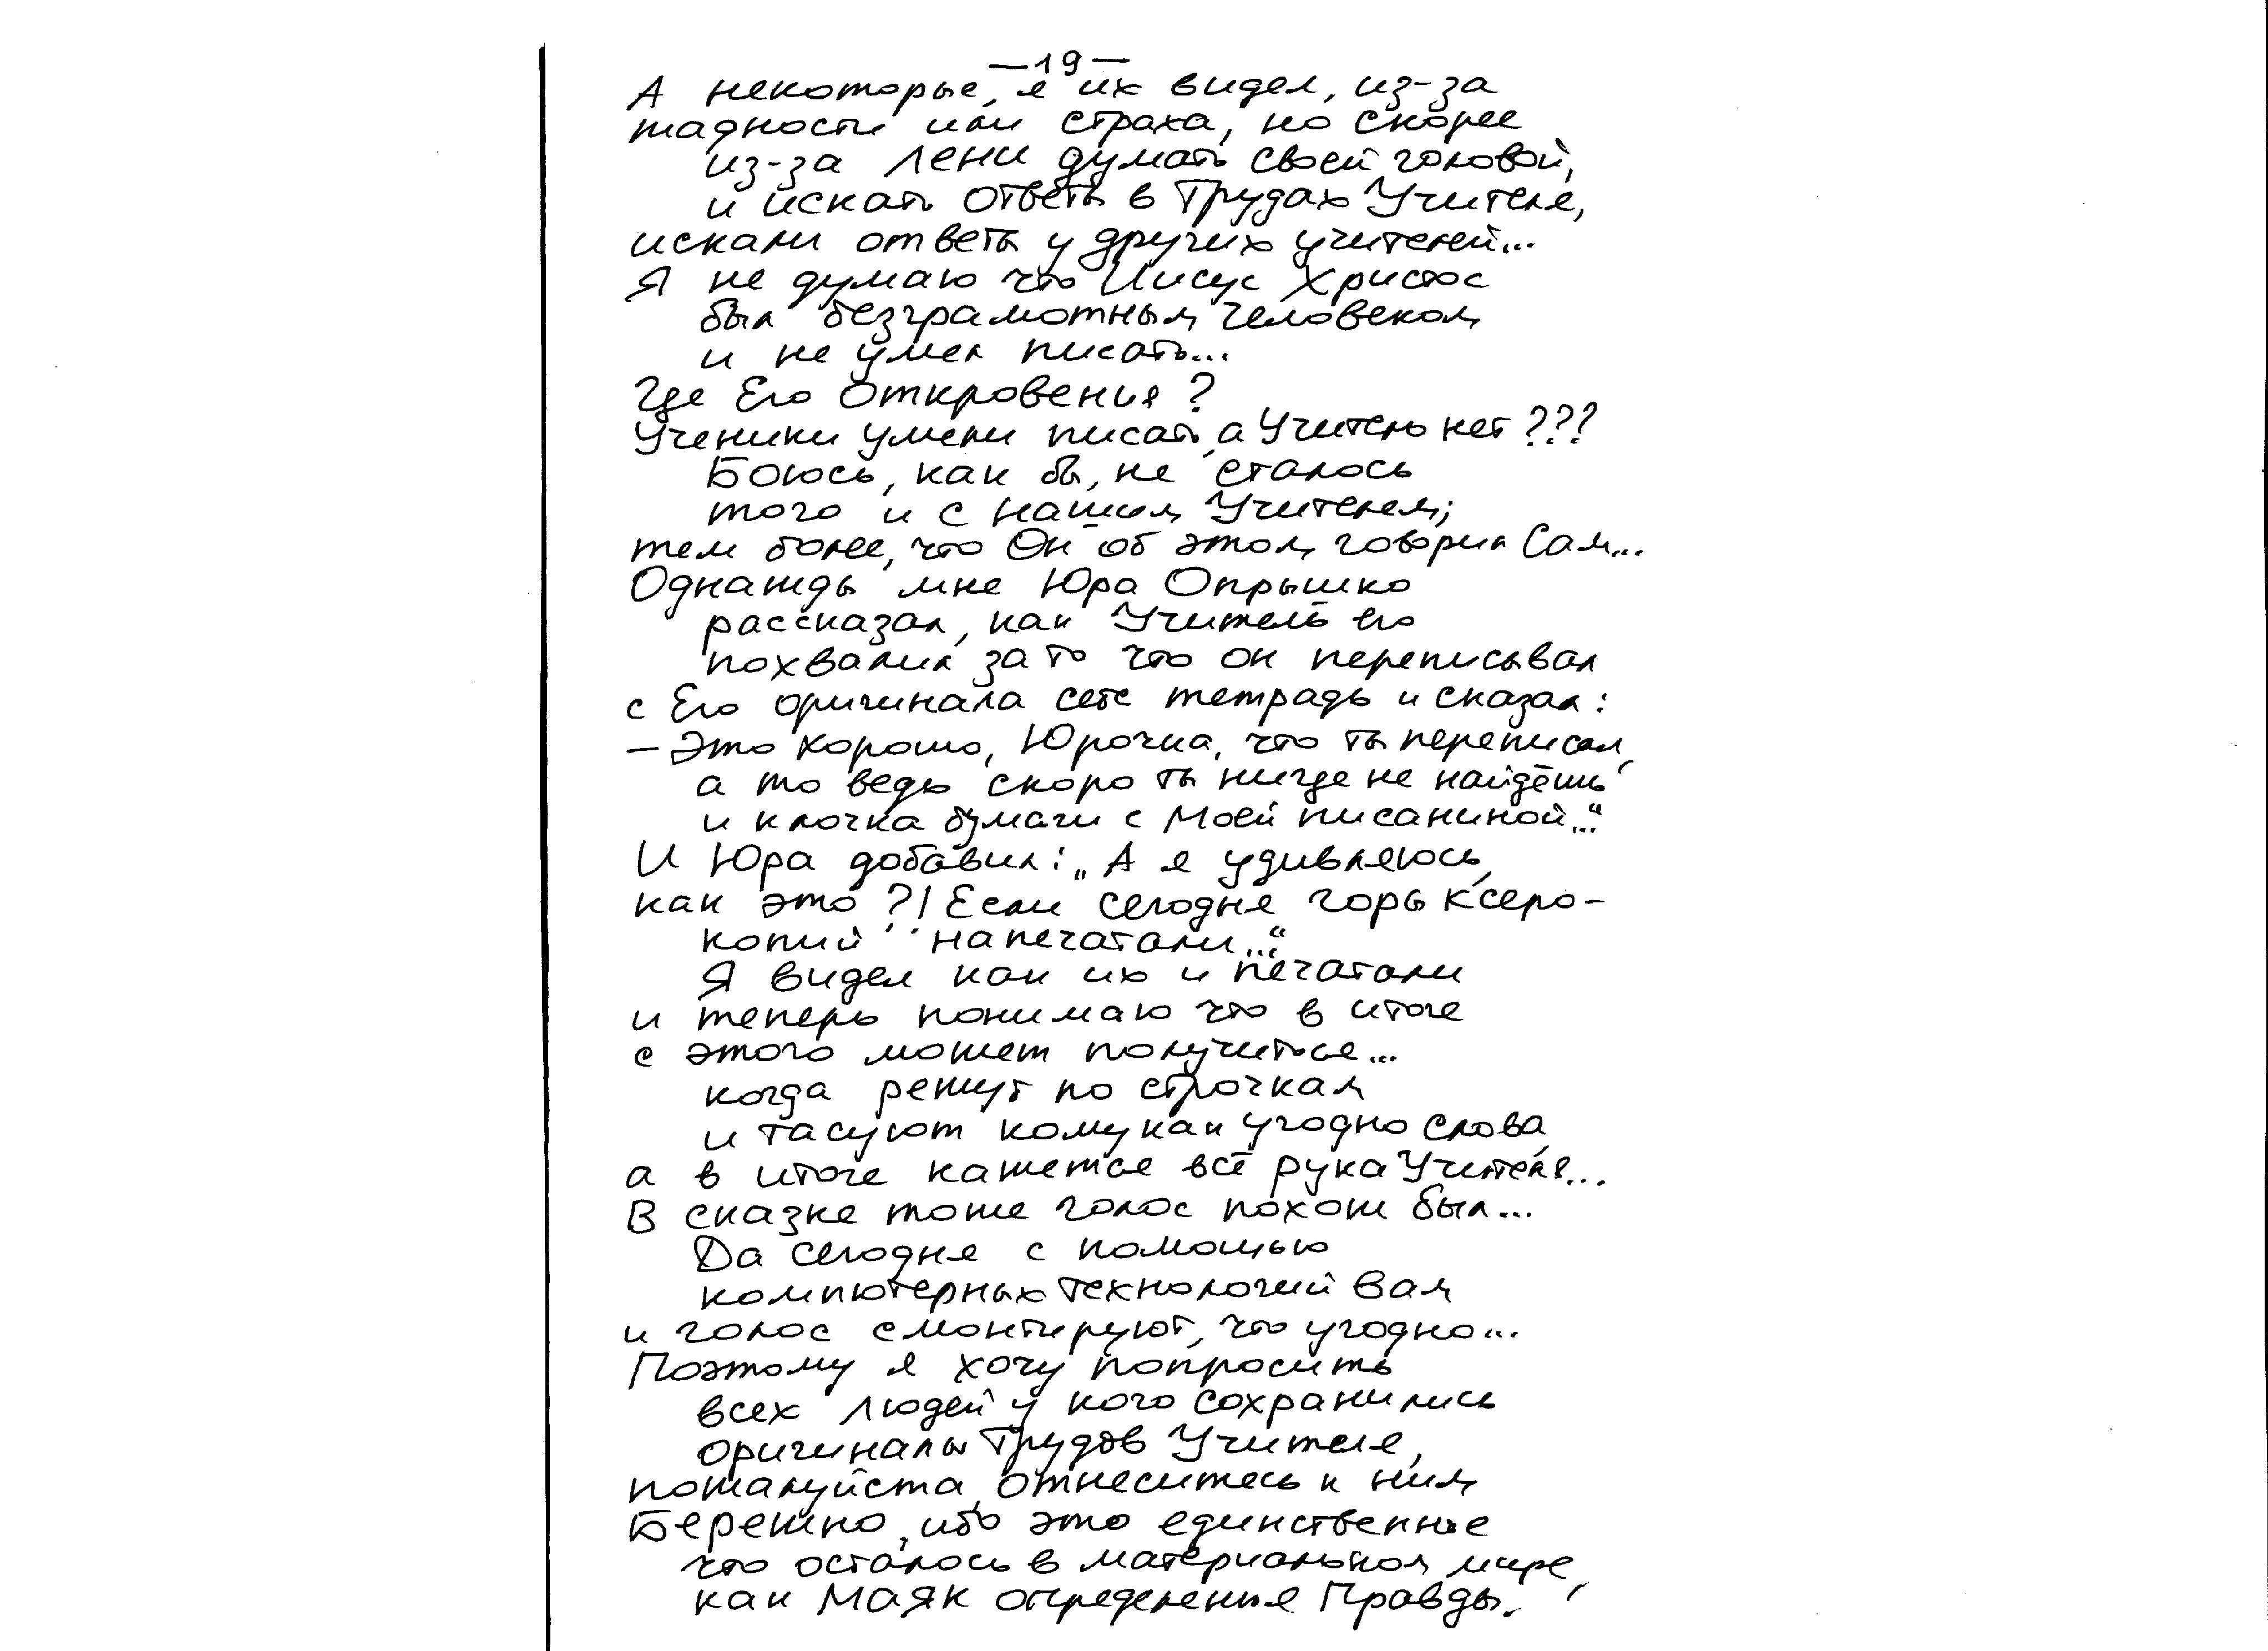 —19—
А некоторые, я их видел, из-за
жадности или страха, но скорее
из-за Лени думать своей головой,
и искать ответы в Трудах Учителя,
искали ответы у других учителей...
Я не думаю что Иисус Христос
был безграмотным человеком
и не умел писать...
Где Его Откровения?
Ученики умели писать, а Учитель нет???
Боюсь, как бы, не сталось
того и с нашим Учителем;
тем более, что Он об этом говорил Сам...
Однажды мне Юра Опрышко
рассказал, как Учитель его
похвалил за то что он переписывал
с Его оригинала себе тетрадь и сказал:
— Это хорошо, Юрочка, что ты переписал,
а то ведь скоро ты нигде не найдёшь
и клочка бумаги с Моей писаниной..."
И Юра добавил: „А я удивляюсь,
как это?! Если сегодня горы ксеро-
копий напечатали..."
Я видел как их и печатали
и теперь понимаю что в итоге
с этого может получиться...
когда режут по строчкам
и тасуют кому как угодно слова,
а в итоге кажется всё рука Учителя...
В сказке тоже голос похож был...
Да сегодня с помощью
компютерных технологий Вам
и голос смонтируют, что угодно...
Поэтому я хочу попросить
всех людей у кого сохранились
оригиналы Трудов Учителя,
пожалуйста, отнеситесь к ним
Бережно, ибо это единственное
что осталось в материальном мире,
как МАЯК определенья Правды.